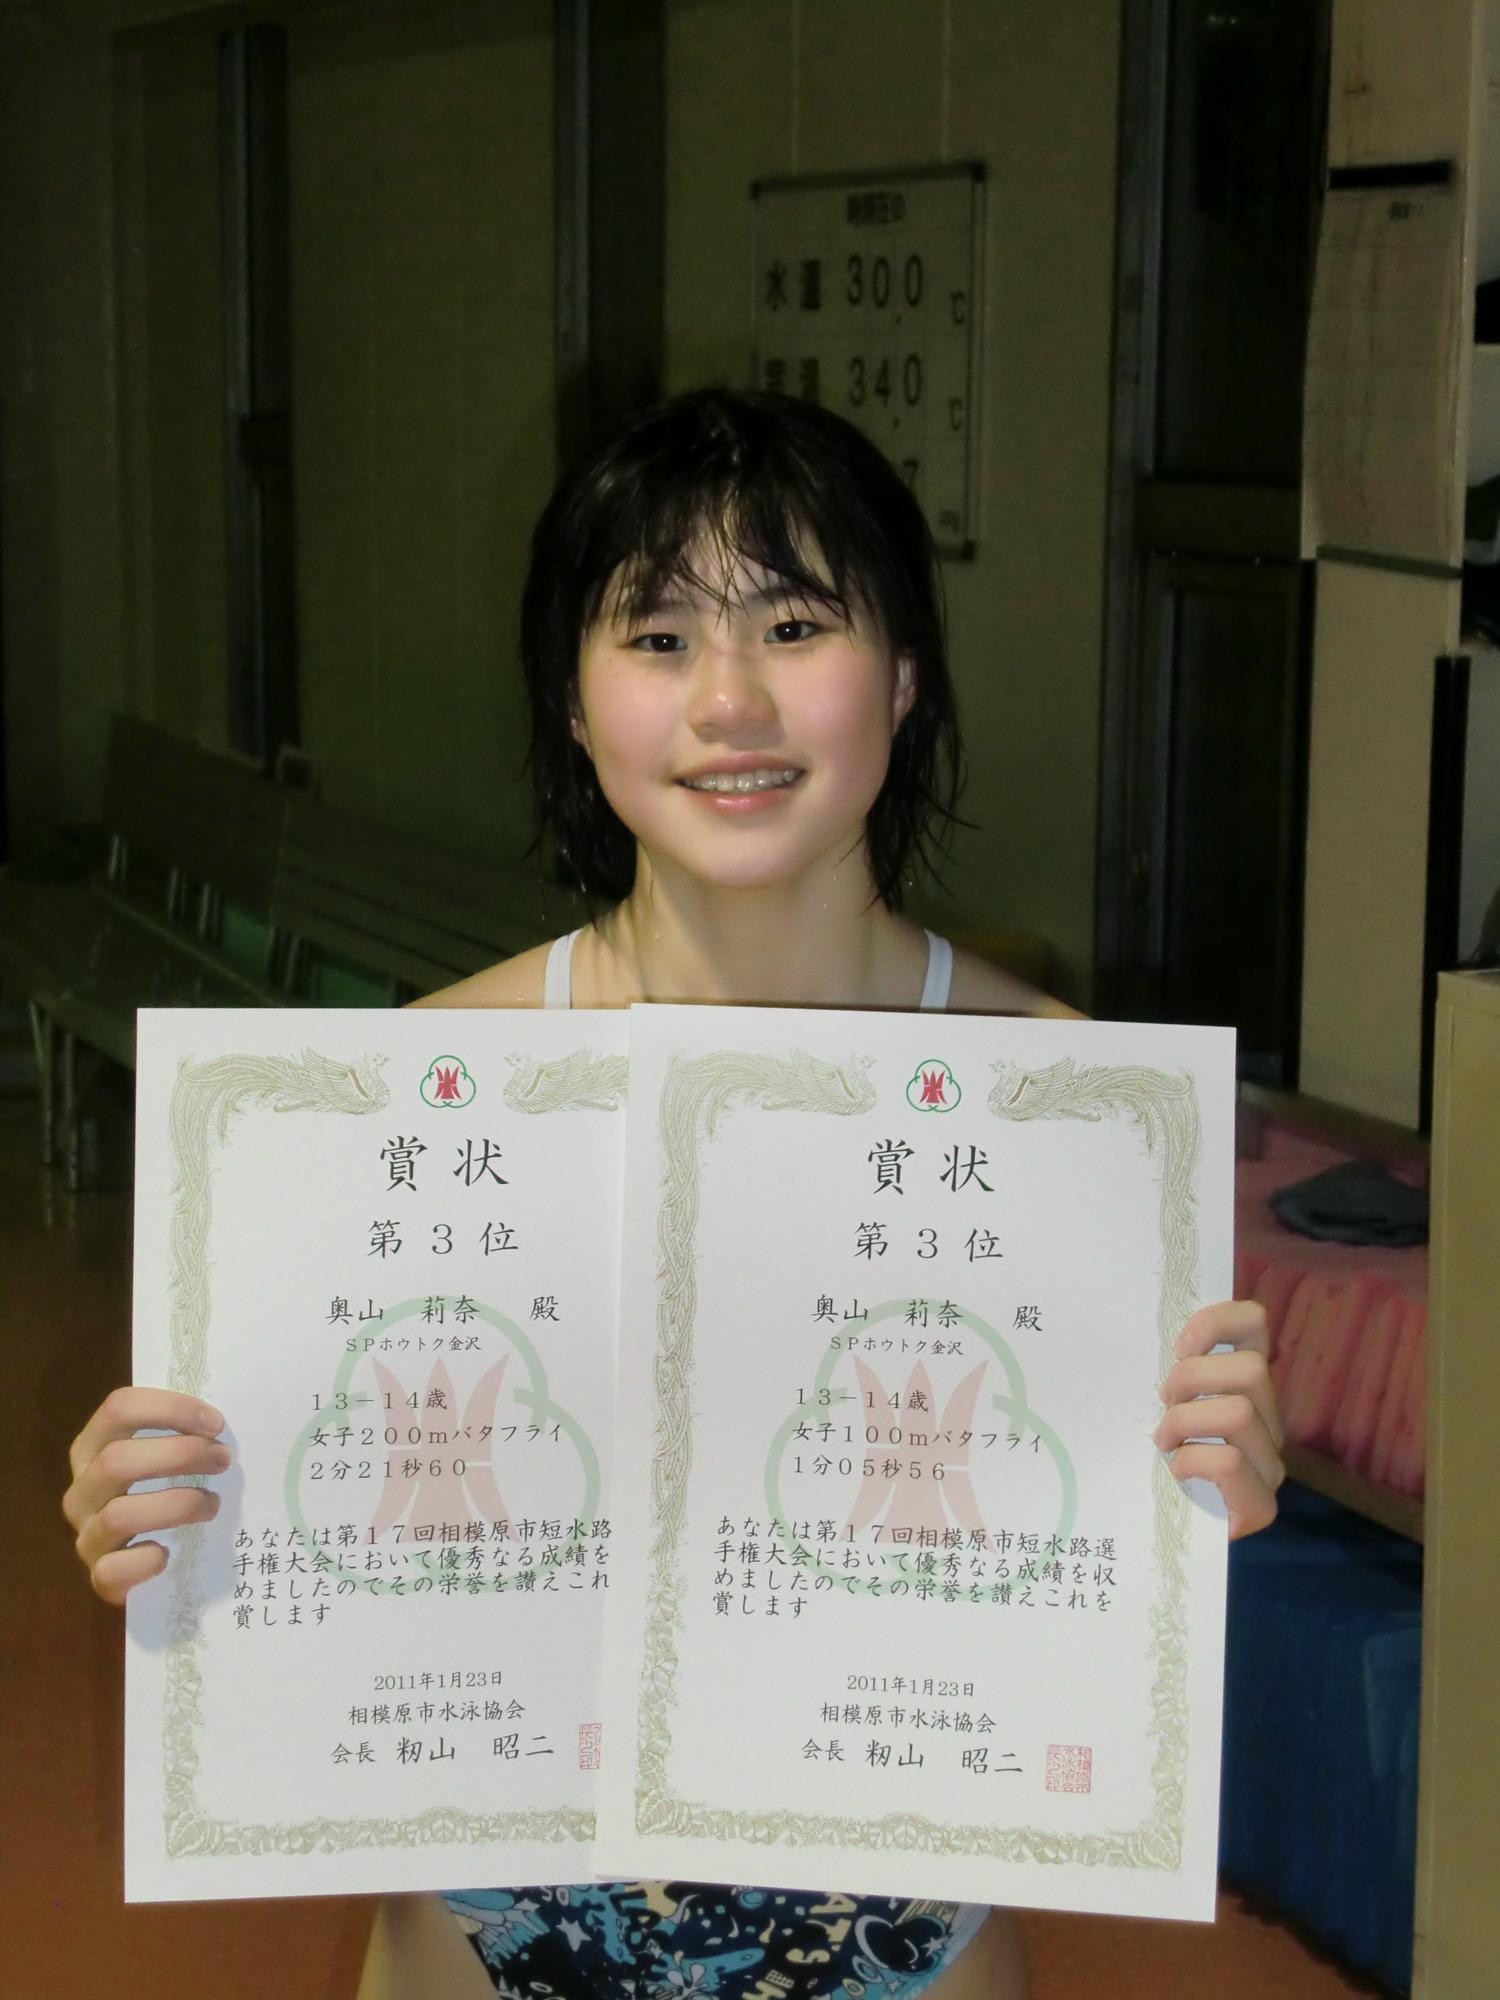 水温 30.0 ℃
34.0 ℃
7
賞状
第3位
奥山 莉奈 殿
SPホウトク金沢
13－14歳
女子200mバタフライ
2分21秒60
あなたは第17回相模原市短水路
手権大会において優秀なる成績を
めましたのでその栄誉を讃えこれ
賞します
2011年1月23日
相模原市水泳協会
会長 籾山 昭二
賞状
第3位
奥山 莉奈 殿
SPホウトク金沢
13－14歳
女子100mバタフライ
1分05秒56
あなたは第17回相模原市短水路選
手権大会において優秀なる成績を収
めましたのでその栄誉を讃えこれを
賞します
2011年1月23日
相模原市水泳協会
会長 籾山 昭二